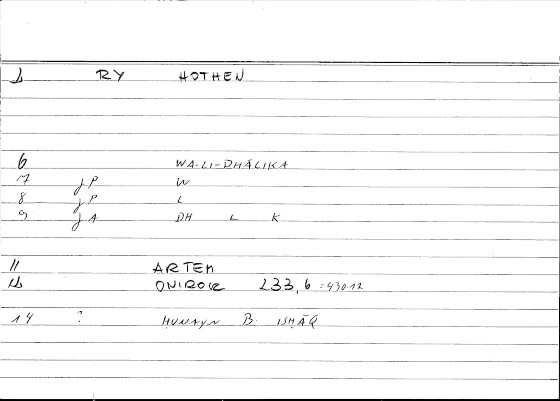 1 RY HOTHEN
6 WA-LI-DHĀLIKA
7 jP W
8 jP L
9 jA DH L K
11 ARTEM
12 ONIROK 233,6 =430.12
14 ? ḤUNAYN B. ISḤĀQ